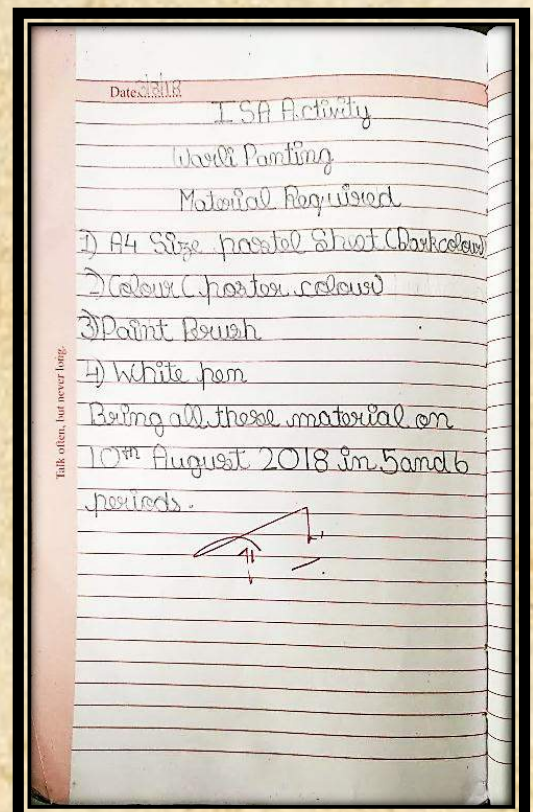 Date 3/8/18
ISA Activity
Warli Panting
Material Required
1) A4 Size pastel Sheet (Dark colour)
2) Colour ( poster colour)
3) Paint Brush
4) White pen
Bring all these material on
10th August 2018 in 5 and 6
periods.
Talk often, but never long.